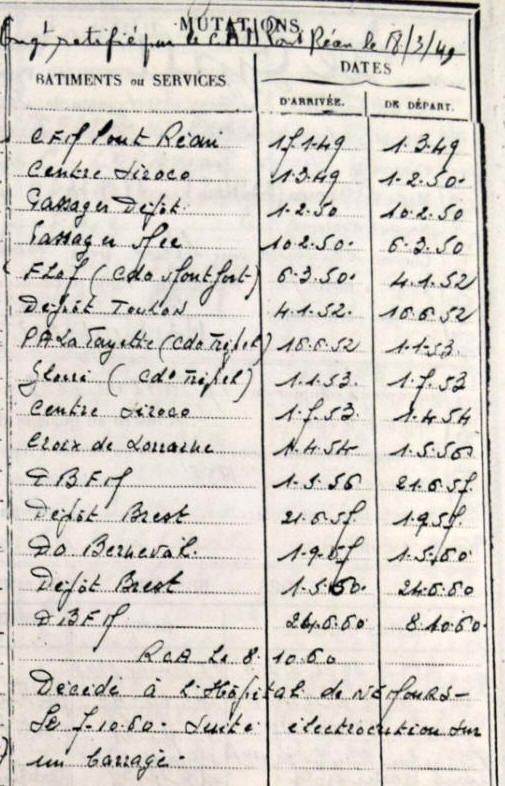 MUTATIONS
Engt ratifié par le CAM Pont Réan le 18/3/49
BATIMENTS ou SERVICES. DATES
D'ARRIVÉE. DE DÉPART.
CFM Pont Réan 17.1.49 1.3.49
Centre Siroco 1.3.49 1.2.50.
Passager Dépôt 1.2.50 10.2.50
Passager 10.2.50. 6.3.50
(Cdo Montfort) 6.3.50. 4.1.52
Dépôt Toulon 4.1.52. 16.6.52
PA La Fayette (Cdo Trépel) 16.6.52 1.1.53.
(Cdo Trépel) 1.1.53. 1.7.53
Centre Siroco 1.7.53. 1.4.54
Croix de Lorraine 1.4.54 1.5.56
DBFM 1.5.56 21.6.57
Dépôt Brest 21.6.57. 1.9.57.
Do Berneval. 1.9.57 1.5.60
Dépôt Brest 1.5.60. 24.6.60
DBFM 24.6.60 8.10.60.
RCA le 8.10.60
Décédé à l'Hôpital de NEMOURS-
le 7.10.60. Suite électrocution sur
un barrage.